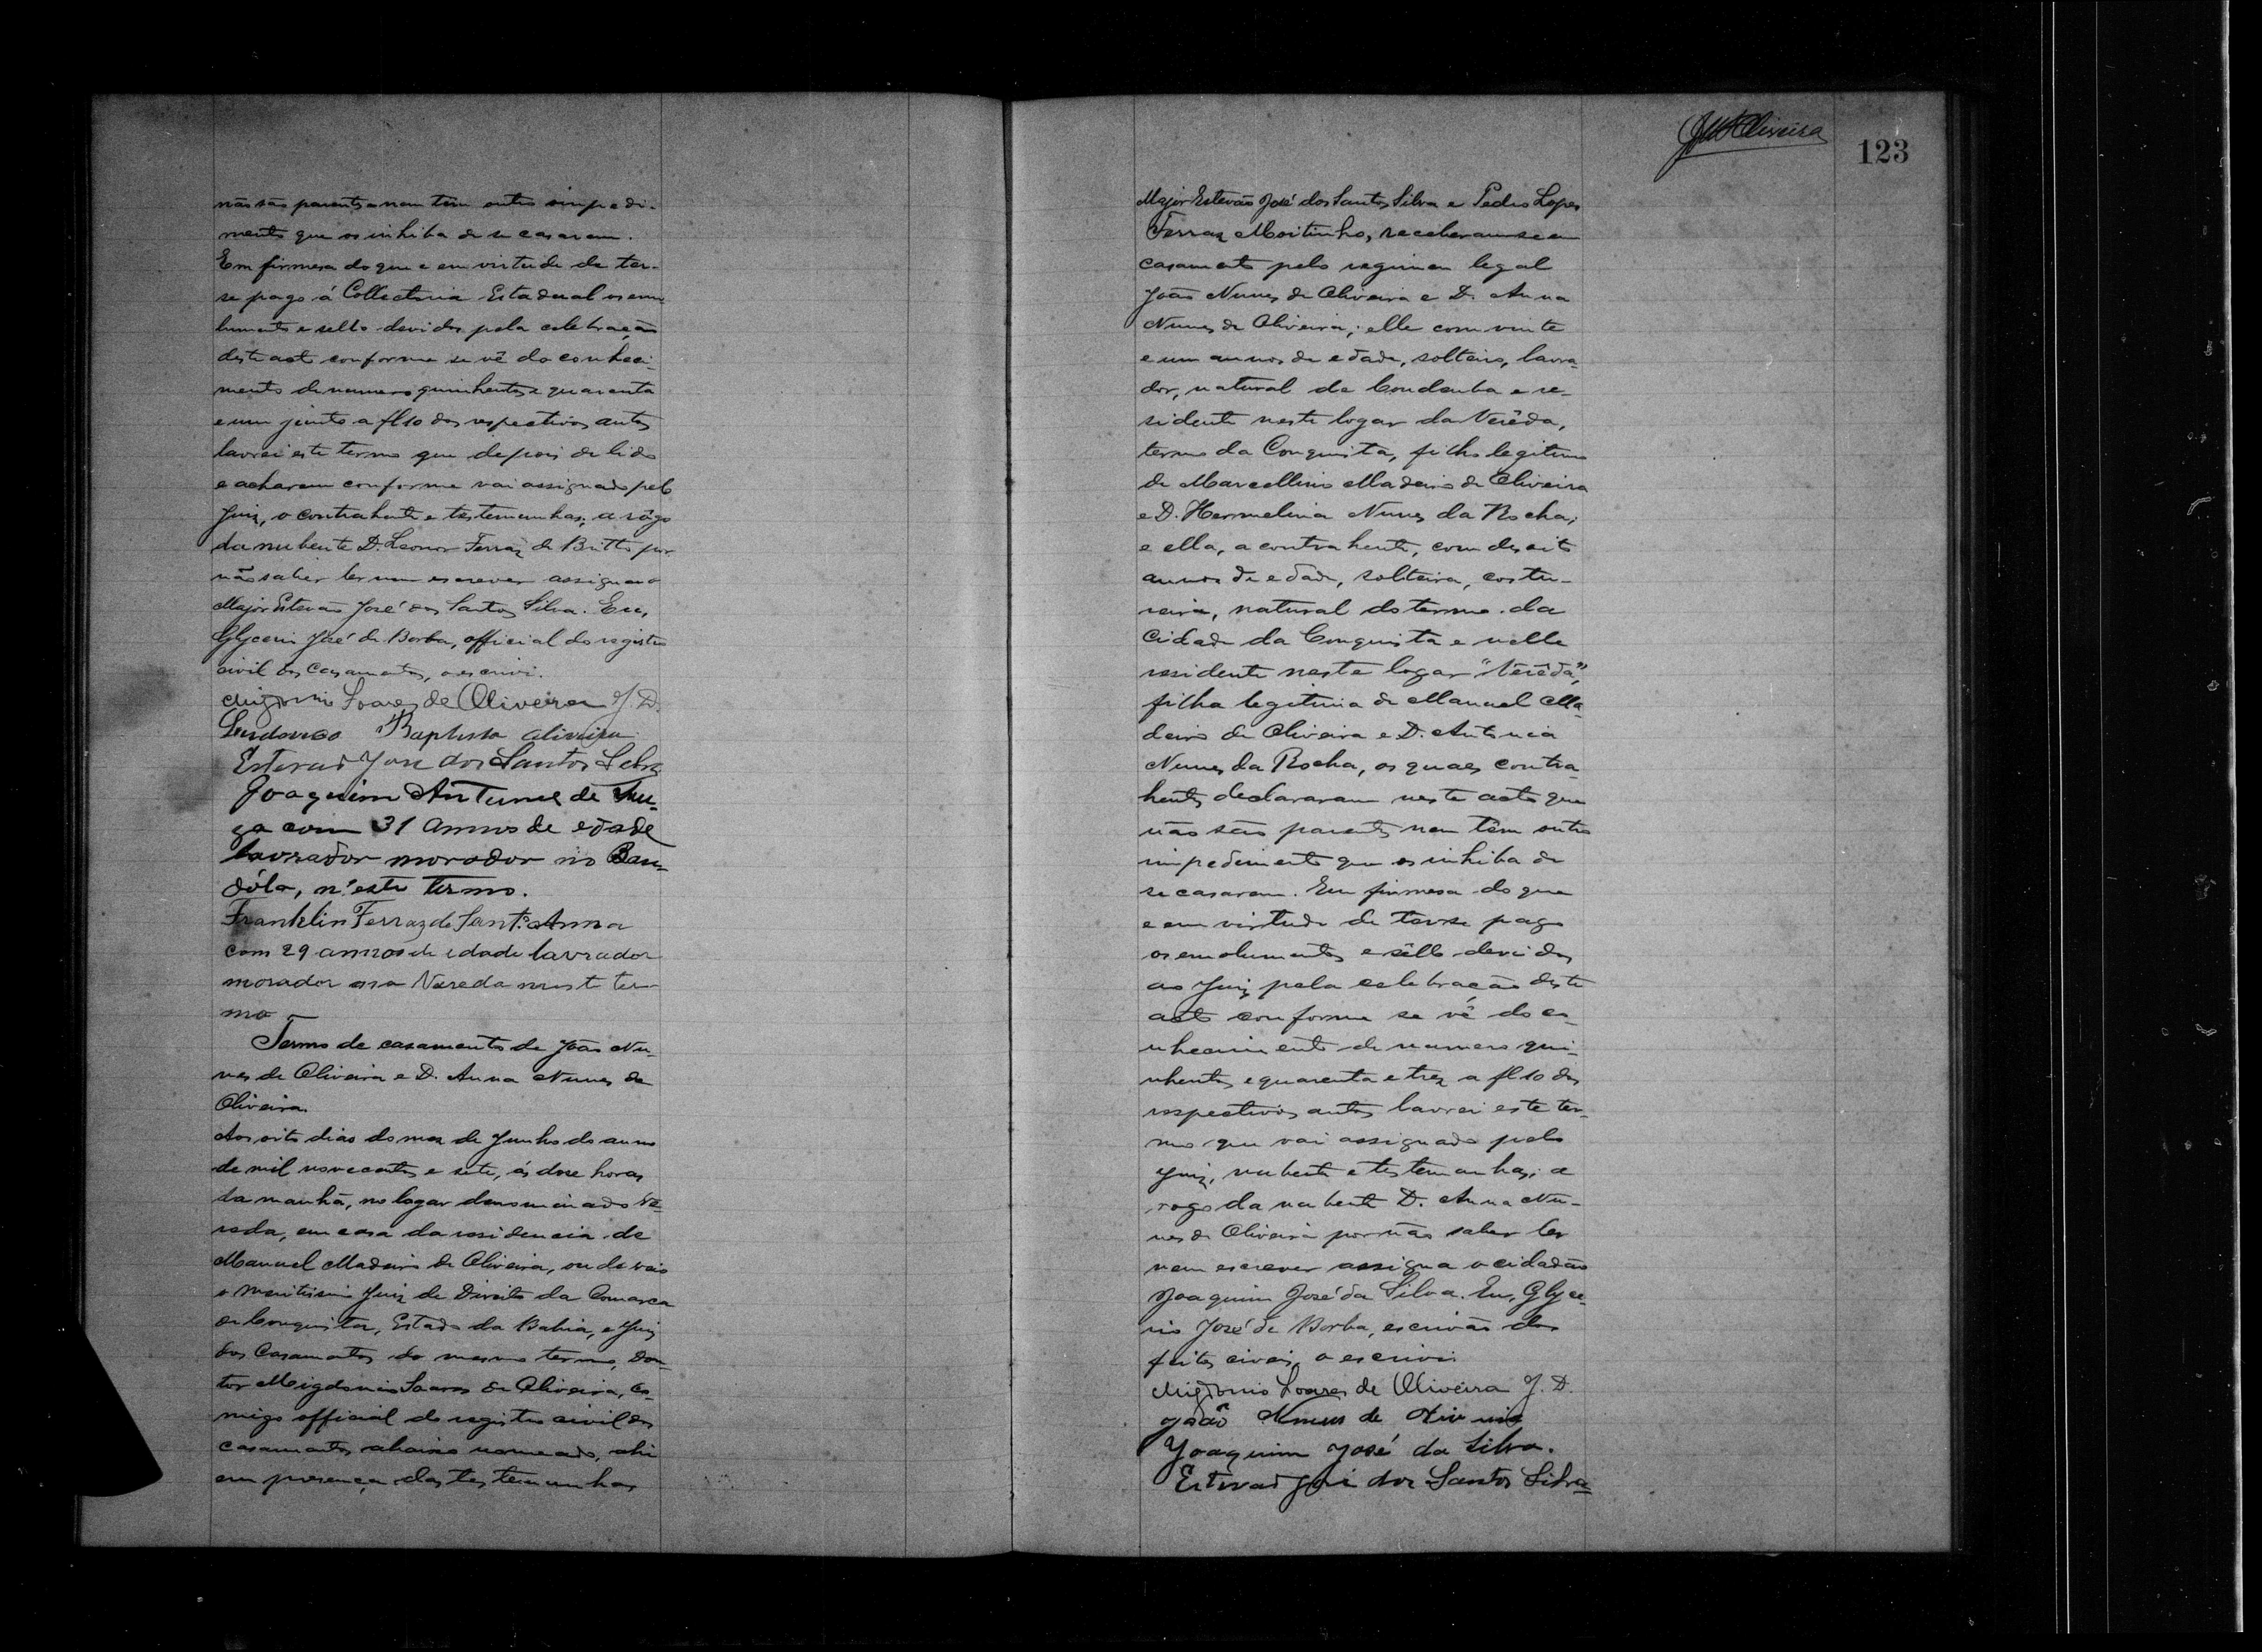 não são parentes nem têm outro impedi-
mento que os inhiba de se casarem.
Em firmesa do que e em virtude de ter-
se pago á Collectoria Estadual os emo
lumentos e sello devidos pela celebração
deste acto conforme se vê do conheci-
mento de numero quinhentos e quarenta
e um junto a fl 10 dos respectivos autos
lavrei este termo que depois de lido
e acharem conforme vai assignado pelo
Juiz, o contrahente e testemunhas; a rôgo
da nubente D. Leonor Ferraz de Britto por
não saber ler nem escrever assigna o
Major Estevão José dos Santos Silva. Eu,
Glycerio José de Borba, official do registro
civil dos Casamentos, o escrivi.
Migdonio Soares de Oliveira J. D.
Baptista Oliveira
Estevão José dos Santos Silva
Joaquim Antunes de
ga com 31 annos de edade
lavrador morador no Ban-
dóla, n'este termo.
Franklin Ferraz de Sant'Anna
com 29 annos de edade lavrador
morador na Vereda neste ter
mo
Termo de casamento de João Nu-
nes de Oliveira e D. Anna Nunes de
Oliveira.
Aos oito dias do mez de Junho do anno
de mil novecentos e sete, ás dose horas
da manhã, no logar denominado Ve-
reda, em casa da residencia de
Manuel Madeiro de Oliveira, onde veio
o meritissimo Juiz de Direito da Comarca
de Conquista, Estado da Bahia, e Juiz
dos Casamentos do mesmo termo, Dou-
tor Migdonio Soares de Oliveira, co-
migo official do registro civil dos
casamentos abaixo nomeado, ahi
em presença das testemunhas
Oliveira
123
Major Estevão José dos Santos Silva e Pedro Lopes
Ferraz Moitinho, receberam-se em
casamento pelo regimen legal
João Nunes de Oliveira e D. Anna
Nunes de Oliveira; elle com vinte
e um annos de edade, solteiro, lavra-
dor, natural de Condeuba e re-
sidente neste logar da Verêda,
termo da Conquista, filho legitimo
de Marcellino Madeiro de Oliveira
e D. Hermelina Nunes da Rocha;
e ella, a contrahente, com desoito
annos de edade, solteira, costu-
reira, natural do termo da
Cidade da Conquista e nelle
residente neste logar "Verêda",
filha legitima de Manuel Ma-
deiro de Oliveira e D. Antonia
Nunes da Rocha, os quaes contra-
hentes declararam neste acto que
não são parentes nem têm outro
impedimento que os inhiba de
se casarem. Em firmesa do que
e em virtude de ter-se pago
os emolumentos e sêllo devidos
ao Juiz pela celebração deste
acto conforme se vê do co-
nhecimento de numero qui-
nhentos e quarenta e trez a fl 10 dos
respectivos autos lavrei este ter-
mo que vai assignado pelo
Juiz, nubente e testemunhas; a
rogo da nubente D. Anna Nu-
nes de Oliveira por não saber ler
nem escrever assigna o cidadão
Joaquim José da Silva. Eu, Glyce-
rio José de Borba, escrivão dos
feitos civeis, o escrivi
Migdonio Soares de Oliveira J. D.
João Nunes de Oliveira
Joaquim José da Silva.
Estevão José dos Santos Silva